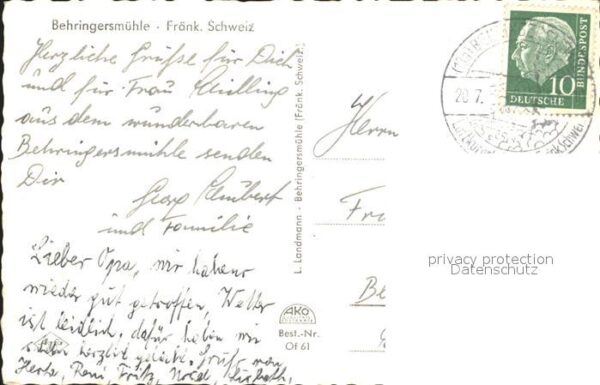 Behringersmühle - Fränk. Schweiz
Herzliche Grüße für Dich
und für Frau
aus dem wunderbaren
Behringersmühle senden
Dir
Georg Lambert
und Familie
Lieber Opa, wir haben
wieder gut getroffen, Wetter
ist leidlich, dafür haben wir
herzlich gelacht. Grüße von
Herta, Fritz,
L. Landmann - Behringersmühle (Fränk. Schweiz)
AKO
Best.-Nr.
Of 61
Herrn
Fr
Be
20.7.
10
DEUTSCHE
BUNDESPOST
privacy protection
Datenschutz